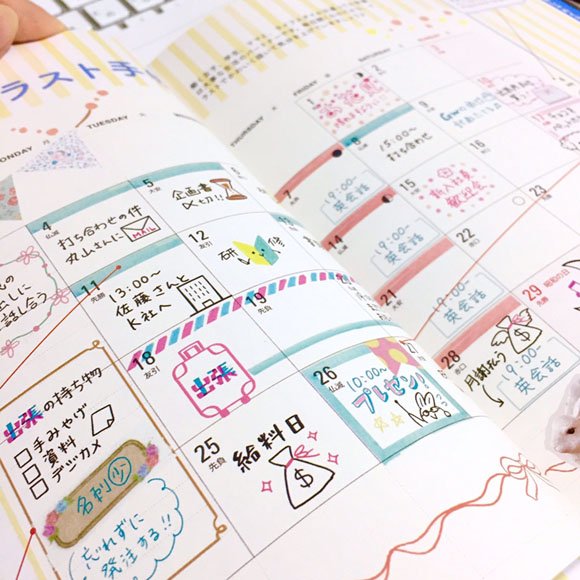 ラスト手
MONDAY 月
TUESDAY 火
THURSDAY 木
FRIDAY 金
SATURDAY 土
4
仏滅
打ち合わせの件
丸山さんに
MAIL
5
大安
企画書
〆切り!!
7
8
15:00~
打ち合わせ
9
11
先勝
13:00~
佐藤さんと
K社へ
12
友引
研修
14
19:00~
英会話
15
新入社員
歓迎会
16
18
友引
出張
19
先負
21
19:00~
英会話
22
赤口
23
出張の持ち物
手みやげ
資料
デジカメ
名刺
忘れずに
発注する!!
25
先負
給料日
$
26
仏滅
10:00~
プレゼン!!
28
赤口
月謝払う
$
19:00~
英会話
29
昭和の日